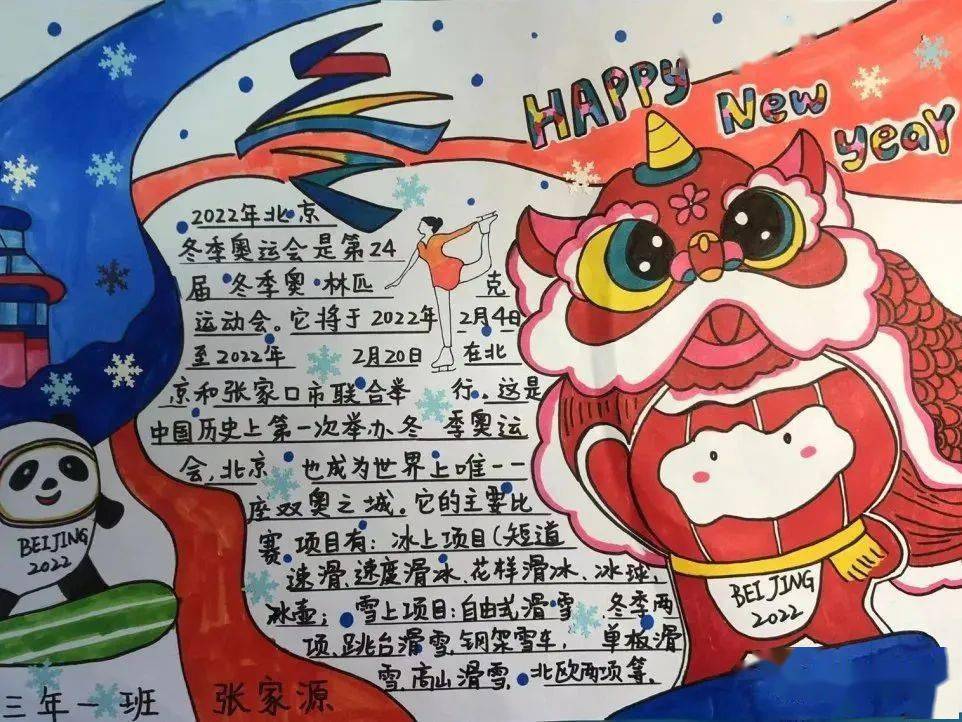 HAPPY New yeaY
2022年北京
冬季奥运会是第24
届冬季奥林匹 克
运动会。它将于2022年 2月4日
至2022年 2月20日 在北
京和张家口市联合举 行。这是
中国历史上第一次举办冬 季奥运
会,北京 也成为世界上唯一一
座双奥之城。它的主要比
赛 项目有:冰上项目(短道
速滑、速度滑冰、花样滑冰、冰球,
冰壶; 雪上项目:自由式滑雪 冬季两
项、跳台滑雪、钢架雪车, 单板滑
雪、高山滑雪、北欧两项等。
BEIJING
2022
BEIJING
2022
三年一班 张家源